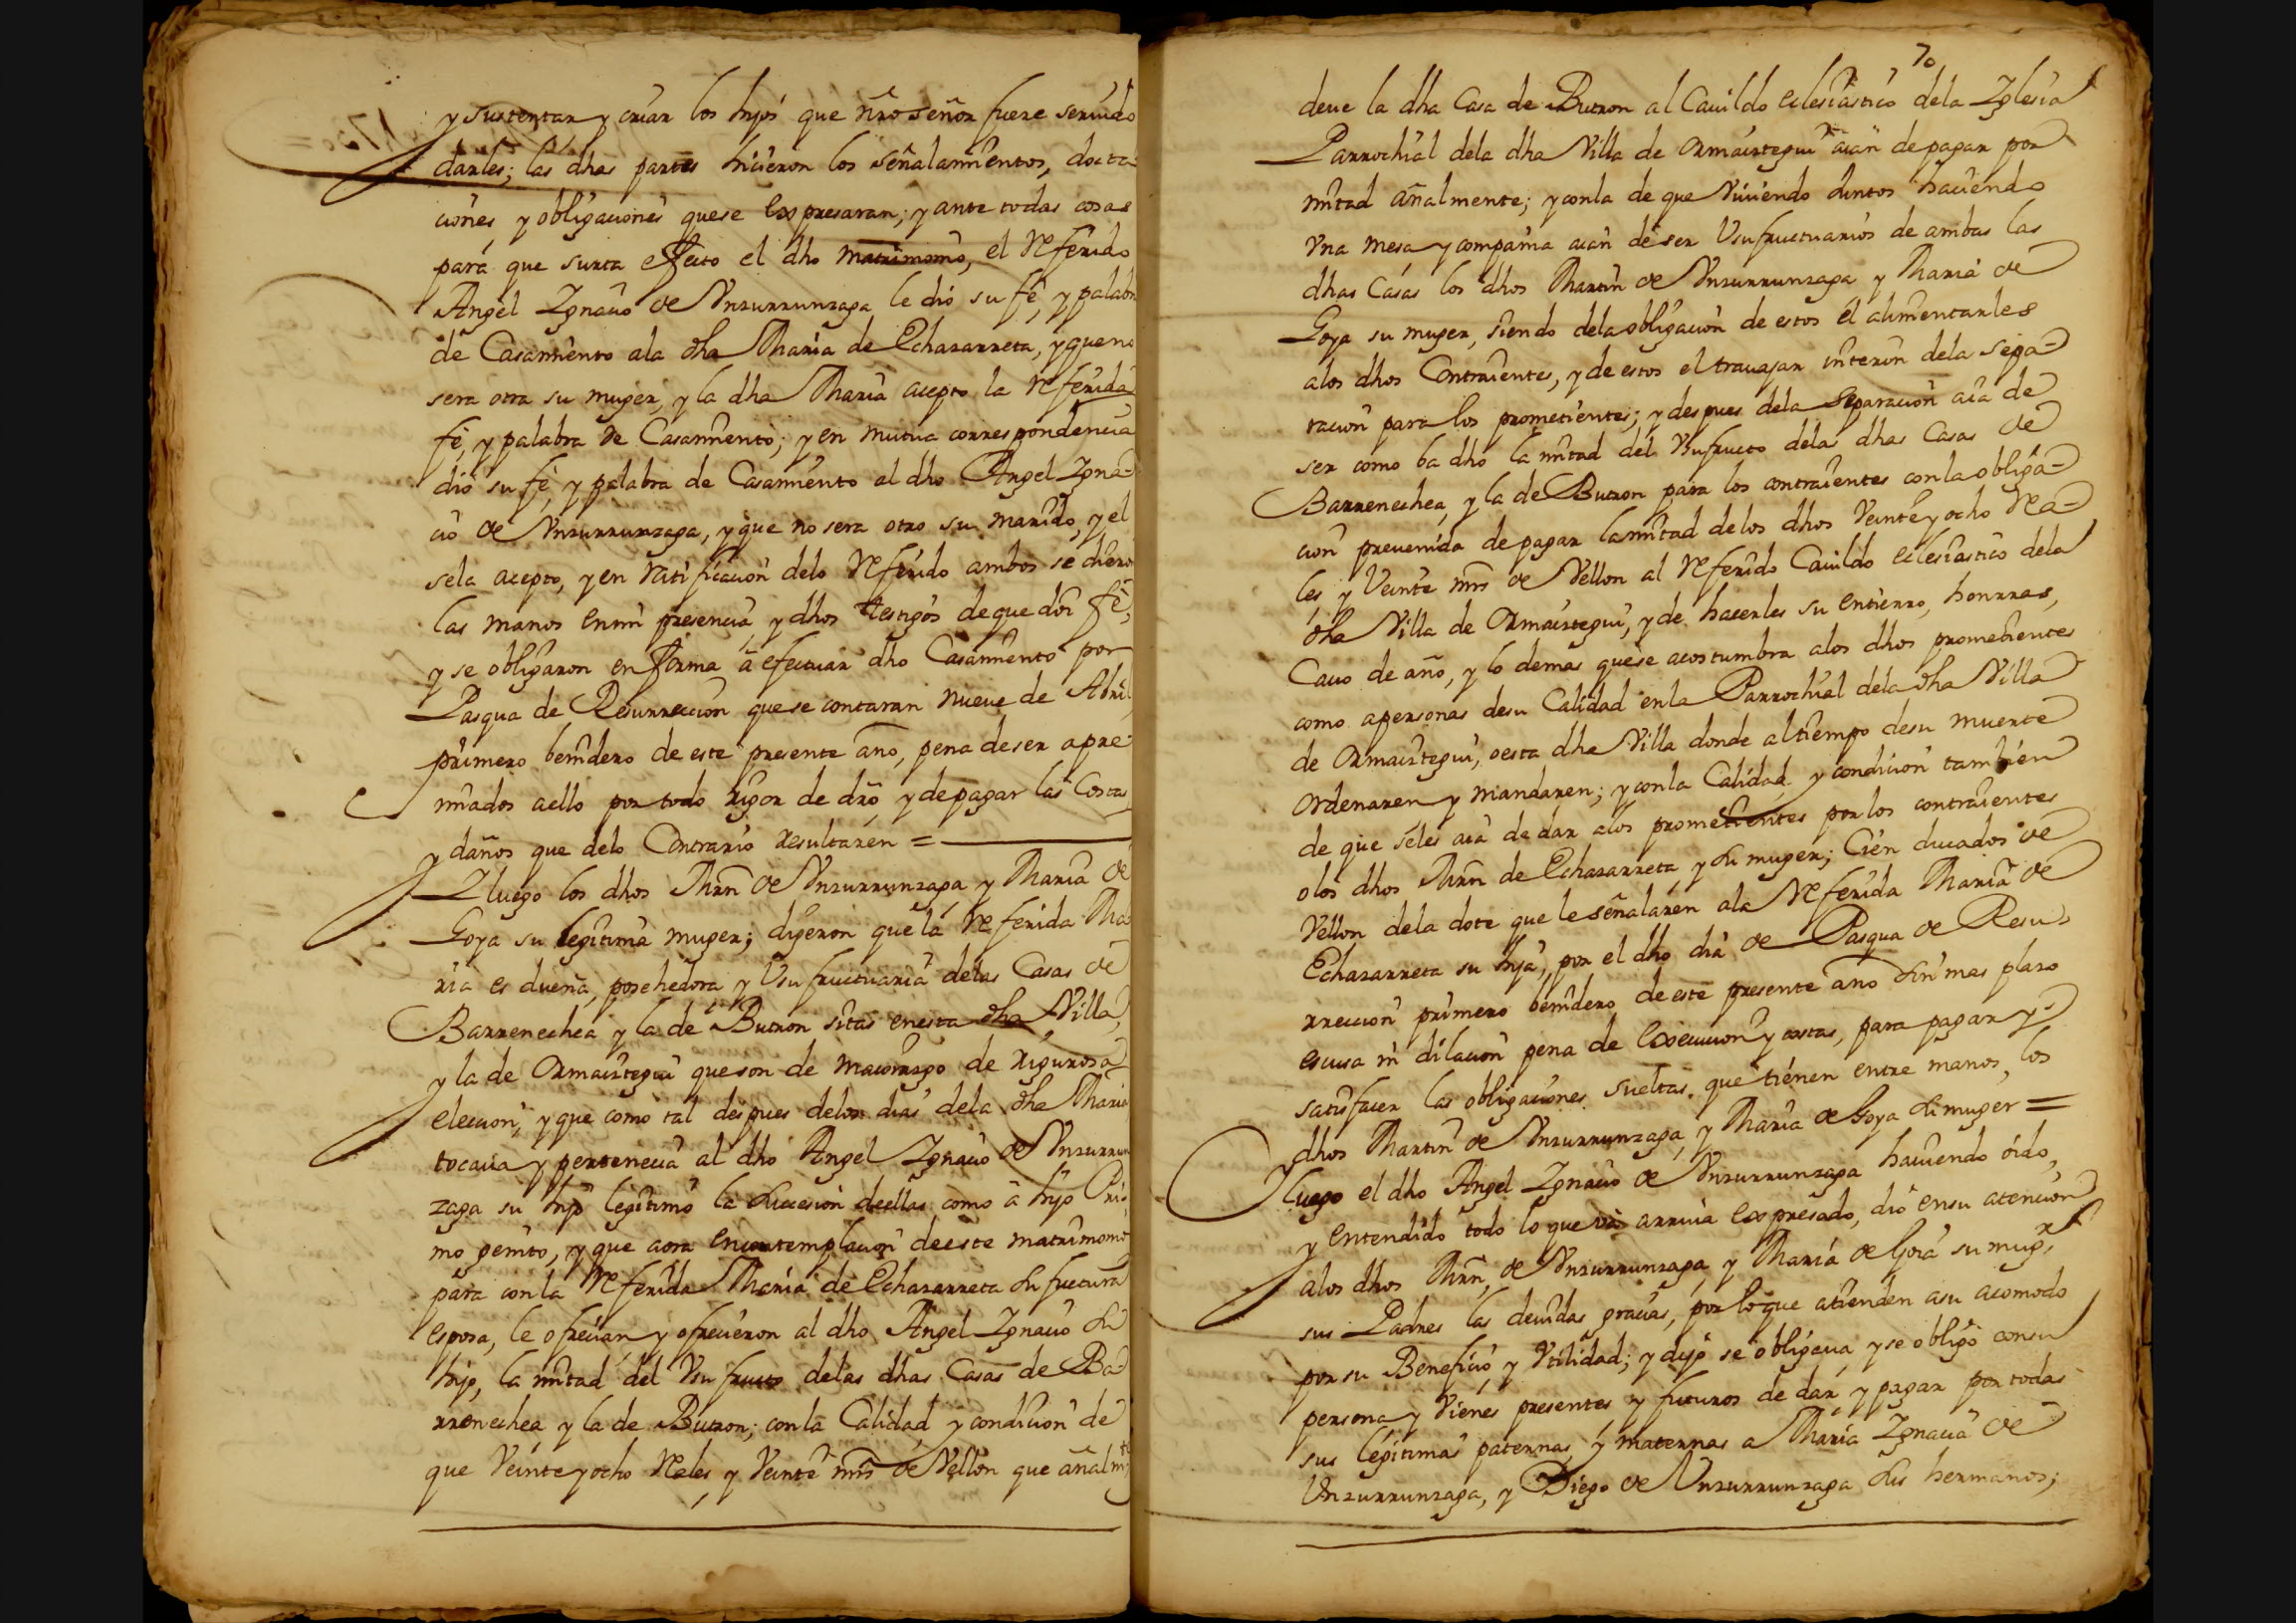 y sustentar y criar los hijos que nr̃o señor fuere seruido
darles; las dhas partes hicieron los señalamientos, dota-
ciones y obligaciones quese Expresaran; y ante todas cosas
para que surta effecto el dho matrimonio, el Referido
Angel Ygnacio de Vnzurrunzaga le dió su fè, y palabra
de Casamiento ala dha Maria de Echazarreta, y que no
sera otra su muger, y la dha Maria acepto la Referida
fè, y palabra de Casamiento; y en mutua correspondencia
dió su fè, y palabra de Casamiento al dho Angel Ygna-
cio de Vnzurrunzaga, y que no sera otro su marido, y el
sela acepto, y en Ratificacion delo Referido ambos se dieron
las manos en mi presencia, y dhos testigos de que doi fè;
y se obligaron en forma à efectuar dho Casamiento por
Pasqua de Resurreccion quese contaran nueue de Abril
primero benidero de este presente año, pena de ser apre-
miados aello por todo rigor de dr̃o, y de pagar las Costas
y daños que delo Contrario resultaren =
Yluego los dhos Mrn̄ de Vnzurrunzaga, y Maria de
Goya su legitima muger; digeron que la Referida Ma-
ria es dueña, posehedora y Vsufructuaria delas Casas de
Barrenechea y la de Butron sitas enesta dha Villa,
y la de Ormaiztegui que son de maiorazgo de rigurosa
eleccion, y que como tal despues delos dias dela dha Maria
tocaua y pertenecia al dho Angel Ygnacio de Vnzurrun-
zaga su hijo legitimo la succesion deellas como à hijo Pri-
mo genito, y que aora en contemplacion deeste matrimonio
para con la Referida Maria de Echazarreta su fuctura
esposa, le ofrecian y ofrecieron al dho Angel Ygnacio su
hijo, la mitad del Vsufructo delas dhas Casas de Ba-
rrenechea y la de Butron; con la Calidad, y condicion de
que Veinte y ocho Reales, y Veinte mrs̄ de Vellon que añalmte
70
deue la dha Casa de Butron al Cauildo eclesiastico dela Yglesia
Parrochial dela dha Villa de Ormaiztegui aian de pagar por
mitad añalmente; y conla de que Viuiendo Juntos haciendo
Vna mesa y compañia aian de ser Vsufructuarios de ambas las
dhas Casas los dhos Martin de Vnzurrunzaga y Maria de
Goya su muger, siendo dela obligacion de estos el alimentarles
alos dhos Contraientes, y de estos el trauajar interin dela sepa-
racion para los prometientes; y despues dela separacion aia de
ser como ba dho la mitad del Vsufructo delas dhas Casas de
Barrenechea, y la de Butron para los contraientes con la obliga-
cion preuenida de pagar la mitad delos dhos Veinte y ocho Rea-
les y Veinte mrs̄ de Vellon al Referido Cauildo eclesiastico dela
dha Villa de Ormaiztegui, y de hacerles su entierro, honrras,
Cauo de año, y lo demas quese acostumbra alos dhos prometientes
como apersonas desu Calidad enla Parrochial dela dha Villa
de Ormaiztegui, oesta dha Villa donde altiempo desu muerte
ordenaren y mandaren; y conla Calidad, y condicion tambien
de que seles aia de dar alos prometientes por los contraientes
o los dhos Mrn̄ de Echazarreta y su muger; Cien ducados de
Vellon dela dote que le señalaren ala Referida Maria de
Echazarreta su hija, por el dho dia de Pasqua de Resu-
rreccion primero benidero de este presente año sin mas plazo
escusa ni dilacion pena de Execucion y costas, para pagar y
satisfacer las obligaciones sueltas que tienen entre manos, los
dhos Martin de Vnzurrunzaga, y Maria de Goya su muger =
Yluego el dho Angel Ygnacio de Vnzurrunzaga hauiendo oido,
y entendido todo lo que va arriua expresado, dió ensu atencion
alos dhos Mrn̄ de Vnzurrunzaga, y Maria de Goia su mugr,
sus Padres las deuidas gracias, por lo que atienden asu acomodo
por su Beneficio, y Vtilidad; y dijo se obligaua y se obligó consu
persona y Vienes presentes y futuros de dar y pagar por todas
sus legitimas paternas, y maternas a Maria Ygnacia de
Vnzurrunzaga, y Diego de Vnzurrunzaga sus hermanos;